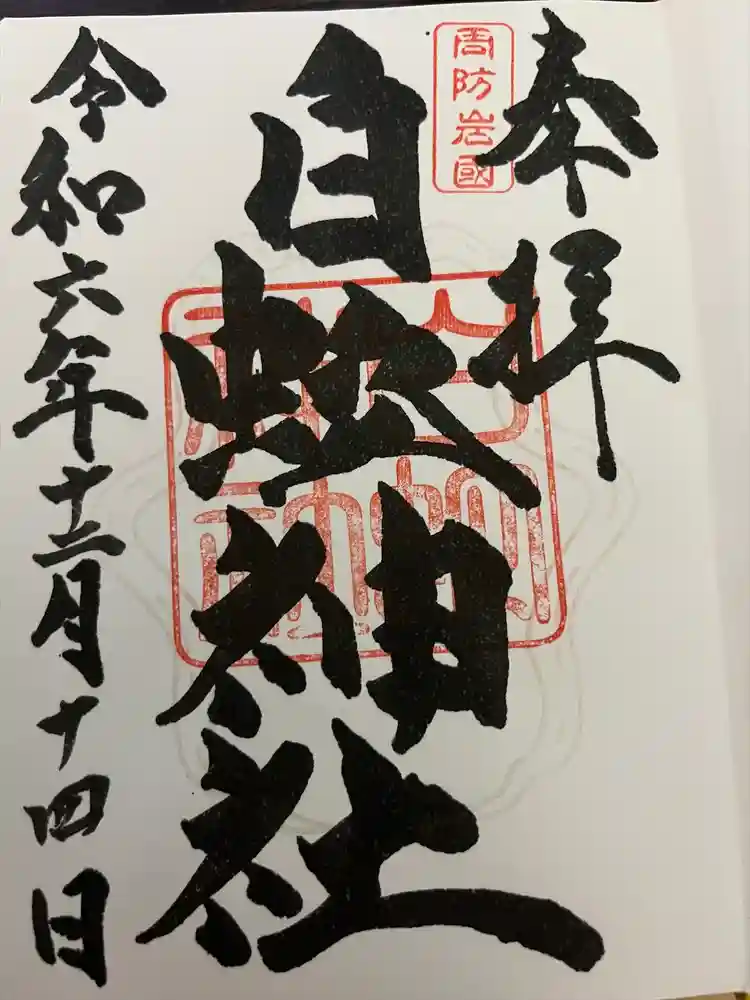 奉拝
周防岩國
白蛇神社
白蛇神社
令和六年十二月十四日